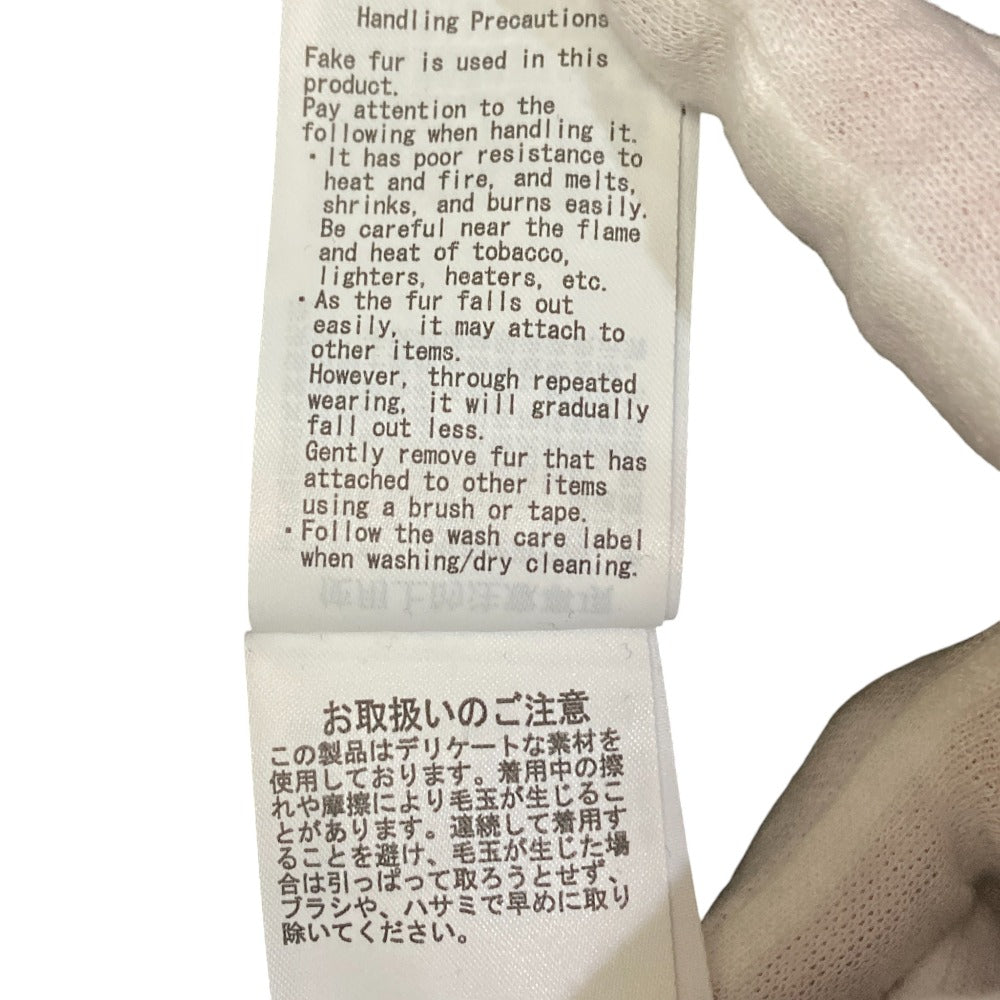 Handling Precautions
Fake fur is used in this
product.
Pay attention to the
following when handling it.
・It has poor resistance to
heat and fire, and melts,
shrinks, and burns easily.
Be careful near the flame
and heat of tobacco,
lighters, heaters, etc.
・As the fur falls out
easily, it may attach to
other items.
However, through repeated
wearing, it will gradually
fall out less.
Gently remove fur that has
attached to other items
using a brush or tape.
・Follow the wash care label
when washing/dry cleaning.
お取扱いのご注意
この製品はデリケートな素材を
使用しております。着用中の擦
れや摩擦により毛玉が生じるこ
とがあります。連続して着用す
ることを避け、毛玉が生じた場
合は引っぱって取ろうとせず、
ブラシや、ハサミで早めに取り
除いてください。